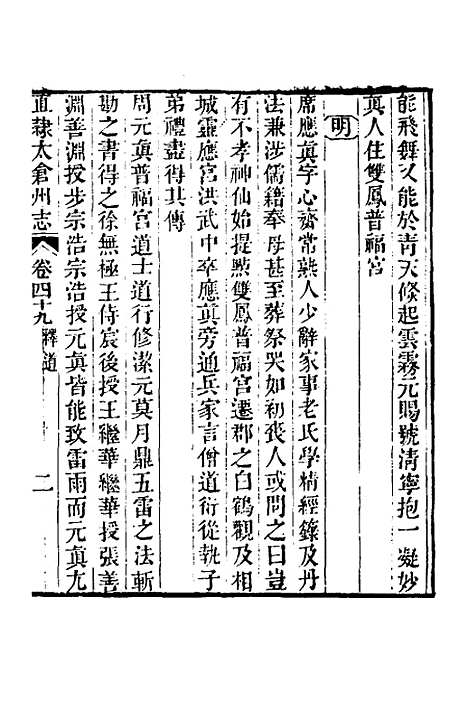 能飛舞又能於青天倐起雲霧元賜號淸寧抱一凝妙
眞人住雙鳳普福宮
明
席應眞字心齋常熟人少辭家事老氏學精經籙及丹
法兼涉儒籍奉母甚至葬祭哭如初喪人或問之曰豈
有不孝神仙始提㸃雙鳳普福宮遷郡之白鶴觀及相
城靈應宮洪武中卒應眞旁通兵家言僧道衍從執子
弟禮盡得其傳
周元眞普福宮道士道行修潔元莫月鼎五雷之法斬
勘之書得之徐無極王侍宸後授王繼華繼華授張善
淵善淵授步宗浩宗浩授元眞皆能致雷雨而元眞尢
直隸太倉州志 卷四十九 釋道 二